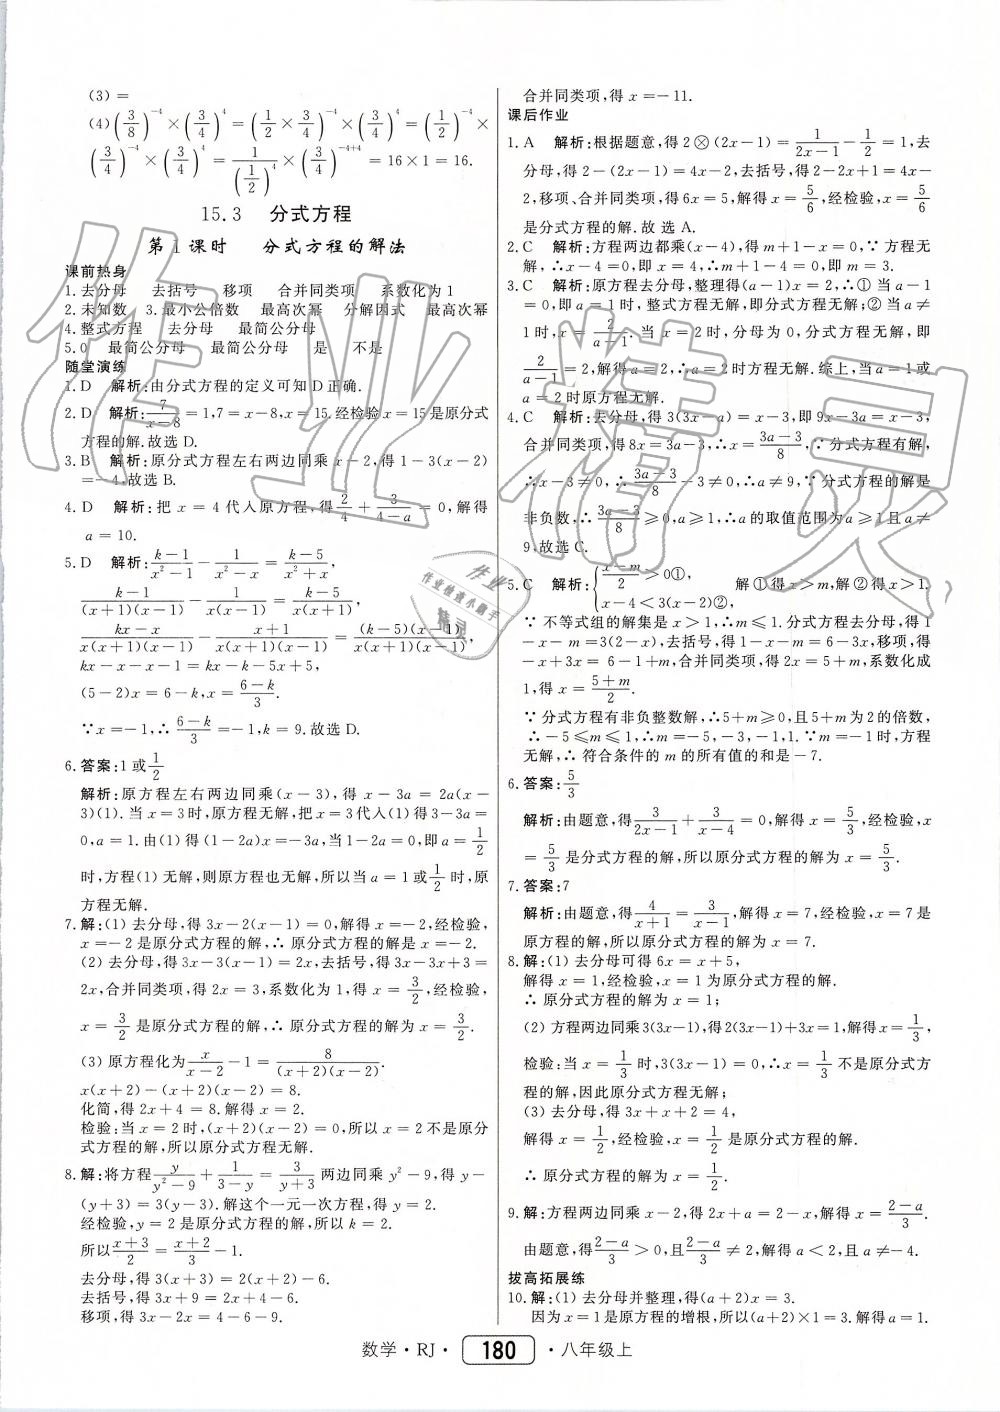 (3) =
(4)(3/8)^-4×(3/4)^4=(1/2×3/4)^-4×(3/4)^4=(1/2)^-4×
(3/4)^-4×(3/4)^4=1/(1/2)^4×(3/4)^-4+4=16×1=16.
15.3 分式方程
第1课时 分式方程的解法
课前热身
1.去分母 去括号 移项 合并同类项 系数化为1
2.未知数 3.最小公倍数 最高次幂 分解因式 最高次幂
4.整式方程 去分母 最简公分母
5.0 最简公分母 最简公分母 是 不是
随堂演练
1.D 解析:由分式方程的定义可知D正确.
2.D 解析:7/(x-8)=1,7=x-8,x=15.经检验x=15是原分式
方程的解.故选D.
3.B 解析:原分式方程左右两边同乘x-2,得1-3(x-2)
=-4.故选B.
4.D 解析:把x=4代入原方程,得2/4+3/(4-a)=0,解得
a=10.
5.D 解析:(k-1)/(x²-1)-1/(x²-x)=(k-5)/(x²+x)
(k-1)/((x+1)(x-1))-1/(x(x-1))=(k-5)/(x(x+1)),
(kx-x)/(x(x+1)(x-1))-(x+1)/(x(x+1)(x-1))=(k-5)(x-1)/(x(x+1)(x-1)),
kx-x-x-1=kx-k-5x+5,
(5-2)x=6-k,x=(6-k)/3.
∵x=-1,∴(6-k)/3=-1,k=9.故选D.
6.答案:1或1/2
解析:原方程左右两边同乘(x-3),得x-3a=2a(x-
3)(1).当x=3时,原方程无解,把x=3代入(1)得3-3a=
0,a=1.由(1)得(1-2a)x=-3a,当1-2a=0,即a=1/2
时,方程(1)无解,则原方程也无解,所以当a=1或1/2时,原
方程无解.
7.解:(1)去分母,得3x-2(x-1)=0,解得x=-2,经检验,
x=-2是原分式方程的解,∴原分式方程的解是x=-2.
(2)去分母,得3x-3(x-1)=2x,去括号,得3x-3x+3=
2x,合并同类项,得2x=3,系数化为1,得x=3/2,经检验,
x=3/2是原分式方程的解,∴原分式方程的解为x=3/2.
(3)原方程化为x/(x-2)-1=8/((x+2)(x-2)).
x(x+2)-(x+2)(x-2)=8.
化简,得2x+4=8.解得x=2.
检验:当x=2时,(x+2)(x-2)=0,所以x=2不是原分
式方程的解,所以原分式方程无解.
8.解:将方程y/(y²-9)+1/(3-y)=3/(y+3)两边同乘y²-9,得y-
(y+3)=3(y-3).解这个一元一次方程,得y=2.
经检验,y=2是原分式方程的解,所以k=2.
所以(x+3)/2=(x+2)/3-1.
去分母,得3(x+3)=2(x+2)-6.
去括号,得3x+9=2x+4-6.
移项,得3x-2x=4-6-9.
合并同类项,得x=-11.
课后作业
1.A 解析:根据题意,得2⊗(2x-1)=1/(2x-1)-1/2=1,去
分母,得2-(2x-1)=4x-2,去括号,得2-2x+1=4x-
2,移项、合并同类项,得6x=5,解得x=5/6,经检验,x=5/6
是分式方程的解.故选A.
2.C 解析:方程两边都乘(x-4),得m+1-x=0,∵方程无
解,∴x-4=0,即x=4,∴m+1-4=0,即m=3.
3.C 解析:原方程去分母,整理得(a-1)x=2,∴①当a-1
=0,即a=1时,整式方程无解,即分式方程无解;②当a≠
1时,x=2/(a-1).当x=2时,分母为0,分式方程无解,即
2/(a-1)=2,解得a=2,∴a=2时方程无解.综上,当a=1或
a=2时原方程无解.
4.C 解析:去分母,得3(3x-a)=x-3,即9x-3a=x-3,
合并同类项,得8x=3a-3,∴x=(3a-3)/8,∵分式方程有解,
∴x-3≠0,∴(3a-3)/8-3≠0,∴a≠9,∵分式方程的解是
非负数,∴(3a-3)/8≥0,a≥1,∴a的取值范围为a≥1且a≠
9,故选C.
5.C 解析:{(x-m)/2>0①, x-4<3(x-2)②, 解①得x>m,解②得x>1,
∵不等式组的解集是x>1,∴m≤1.分式方程去分母,得1
-x-m=3(2-x),去括号,得1-x-m=6-3x,移项,得
-x+3x=6-1+m,合并同类项,得2x=5+m,系数化成
1,得x=(5+m)/2.
∵分式方程有非负整数解,∴5+m≥0,且5+m为2的倍数,
∴-5≤m≤1,∴m=-5,-3,-1,1.∵m=-1时,方程
无解,∴符合条件的m的所有值的和是-7.
6.答案:5/3
解析:由题意,得3/(2x-1)+3/(x-4)=0,解得x=5/3,经检验,x
=5/3是分式方程的解,所以原分式方程的解为x=5/3.
7.答案:7
解析:由题意,得4/(x+1)=3/(x-1),解得x=7,经检验,x=7是
原方程的解,所以原分式方程的解为x=7.
8.解:(1)去分母可得6x=x+5,
解得x=1,经检验,x=1为原分式方程的解.
∴原分式方程的解为x=1;
(2)方程两边同乘3(3x-1),得2(3x-1)+3x=1,解得x=1/3,
检验:当x=1/3时,3(3x-1)=0,∴x=1/3不是原分式方
程的解,因此原分式方程无解;
(3)去分母,得3x+x+2=4,
解得x=1/2,经检验,x=1/2是原分式方程的解.
∴原分式方程的解为x=1/2.
9.解:方程两边同乘x-2,得2x+a=2-x,解得x=(2-a)/3.
由题意,得(2-a)/3>0,且(2-a)/3≠2,解得a<2,且a≠-4.
拔高拓展练
10.解:(1)去分母并整理,得(a+2)x=3.
因为x=1是原方程的增根,所以(a+2)×1=3.解得a=1.
数学·RJ· 180 ·八年级上
作业精灵
作业
作业检查小助手
精灵